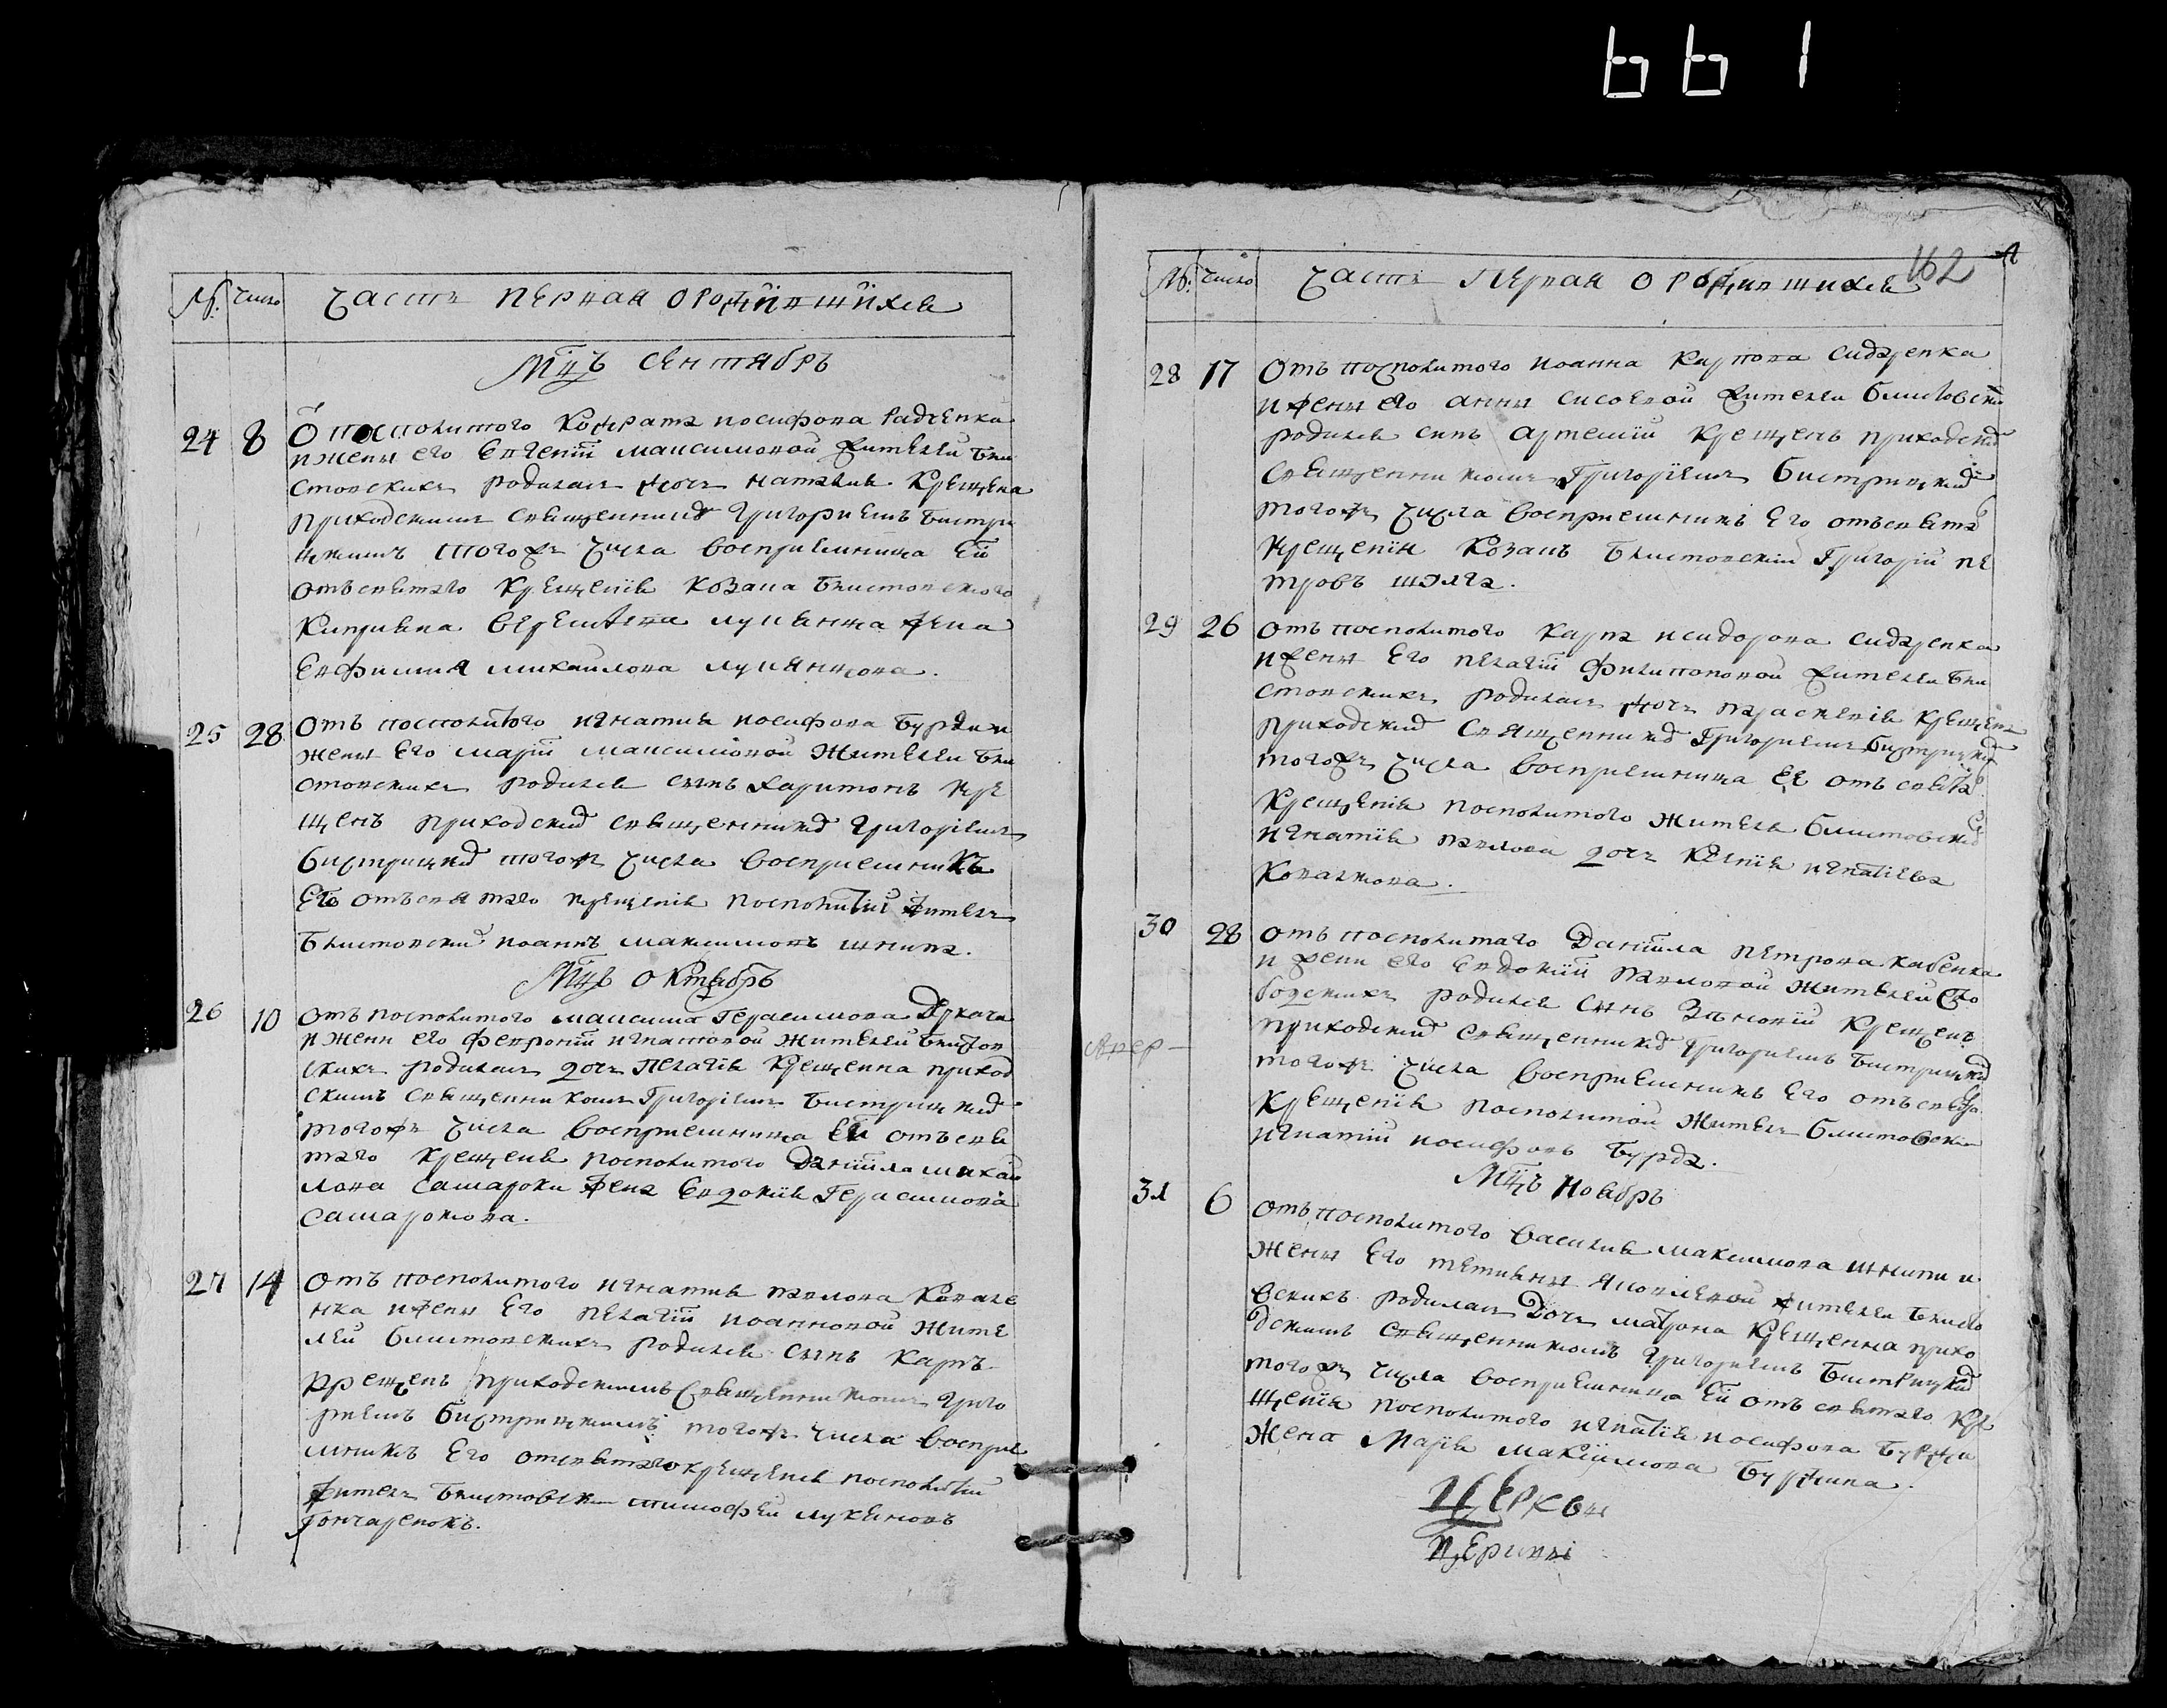 661
№ Число Часть первая о родившихся
Мцъ сентябрь
24 8 От посполитого Кондрата иосифова Радченка
и жены его Евгении максимовой жителей бли
стовских родилась дочь наталия Крещена
приходским священником Григорием Бистри
цким того ж числа восприемница ей
отъ святаго Крещения Козака блистовского
Киприана лукянца жена
Евфимия михайлова лукянцова.
25 28 Отъ посполитого игнатия иосифова Бурди и
жены Его марии максимовой Жителей бли
стовских родился сынъ харитонъ кре
щенъ приходским священником Григорием
Бистрицким того ж числа восприемникъ
Его отъ святаго крещения посполитий житель
блистовский иоаннъ максимовъ шкипа.
Мцъ октябрь
26 10 Отъ посполитого максима Герасимова Деркача
и жени его февронии игнатовой жителей блистов
ских родилась дочь Пелагия Крещенна приход
ским священником Григорием Бистрицким
того ж числа восприемница ей отъ свя
таго крещения посполитого даниила михай
лова самароки жена Евдокия Герасимова
самарокова.
27 14 Отъ посполитого игнатия павлова Ковале
нка и жены Его пелагии иоанновой жите
лей блистовских родился сынъ Карпъ
Крещенъ приходским священником григо
рием Бистрицкимъ того ж числа восприе
мникъ Его от святаго крещения посполитий
житель блистовски тимофей лукяновъ
гончаренокъ.
162
№ Число Часть Первая о родившихся
28 17 Отъ посполитого иоанна Карпова сидаренка
и жены его анны сисоевой жители блистовски
родился синъ Артемий крещенъ приходским
священником Григорием Бистрицким
того ж числа восприемникъ Его отъ святаг
крещения Козакъ блистовский Григорий пе
тровъ шуляга.
29 26 Отъ посполитого карпа исидорова сидаренка
и жены Его пелагии филипповой жители бли
стовских родилась дочь параскевия крещена
приходским священником Григорием Бистрицким
того ж числа восприемница Ее отъ святаг
Крещения посполитого жителя блистовский
игнатия павлова дочь Ксения игнатиева
Ковалкова.
30 28 Отъ посполитаго Даниила петрова кабенка
и жени его евдокии павловой жителей сло
бодских родился сынъ Зиновий крещенъ
приходским священником Григорием Бистрицким
того ж числа восприемникъ Его отъ святаг
крещения посполитой житель блистовски
игнатий иосифовъ Бурда.
Мцъ Ноябрь
31 6 Отъ посполитого василия максимова шкипи и
жены Его татияны яковлевой жителей блисто
вских родилась Дочь матрона крещенна прихо
дским священникомъ Григорием Бистрицким
того ж числа восприемница Ей отъ святаго кре
щения посполитого игнатия иосифова Бурди
жена Мария максимова Бурдина.
Церкви
церкви